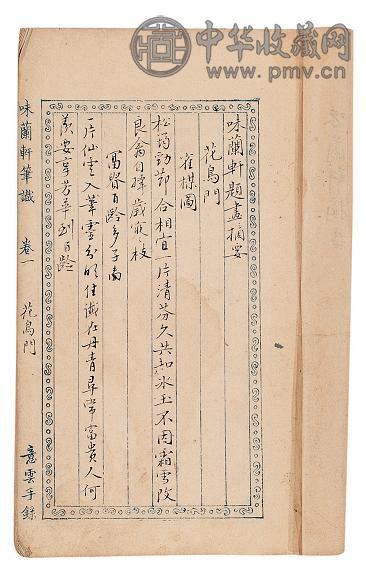 中华收藏网
www.pmv.cn
味蘭軒題畫摘要
花鳥門
雀楳圖
松筠勁節合相宜一片清芬久共知冰玉不因霜雪改
良禽自嘩歲寒枝
富貴百齡多子圖
一片仙雲入筆雲分明佳識在丹青尋常富貴人何
羨安享芳華到百齡
味蘭軒筆識 卷一 花鳥門 意雲手錄